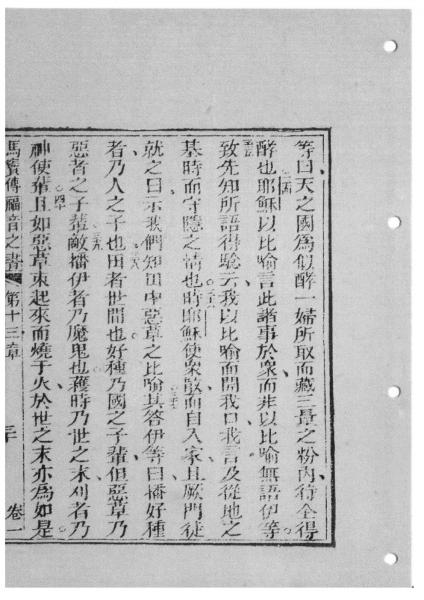 等曰天之國為似酵一婦所取而藏三量之粉內待全得
酵也耶穌以比喻言此諸事於衆而非以比喻無語伊等
致先知所語得驗云我以比喻而開我口我言及從地之
基時而守隱之情也時耶穌使衆散而自入家且厥門徒
就之曰示我們知田中惡草之比喻其答伊等曰播好種
者乃人之子也田者世間也好種乃國之子輩但惡草乃
惡者之子輩敵播伊者乃魔鬼也穫時乃世之末刈者乃
神使輩且如惡草束起來而燒于火於世之末亦為如是
馬竇傳福音之書 第十三章 卷一